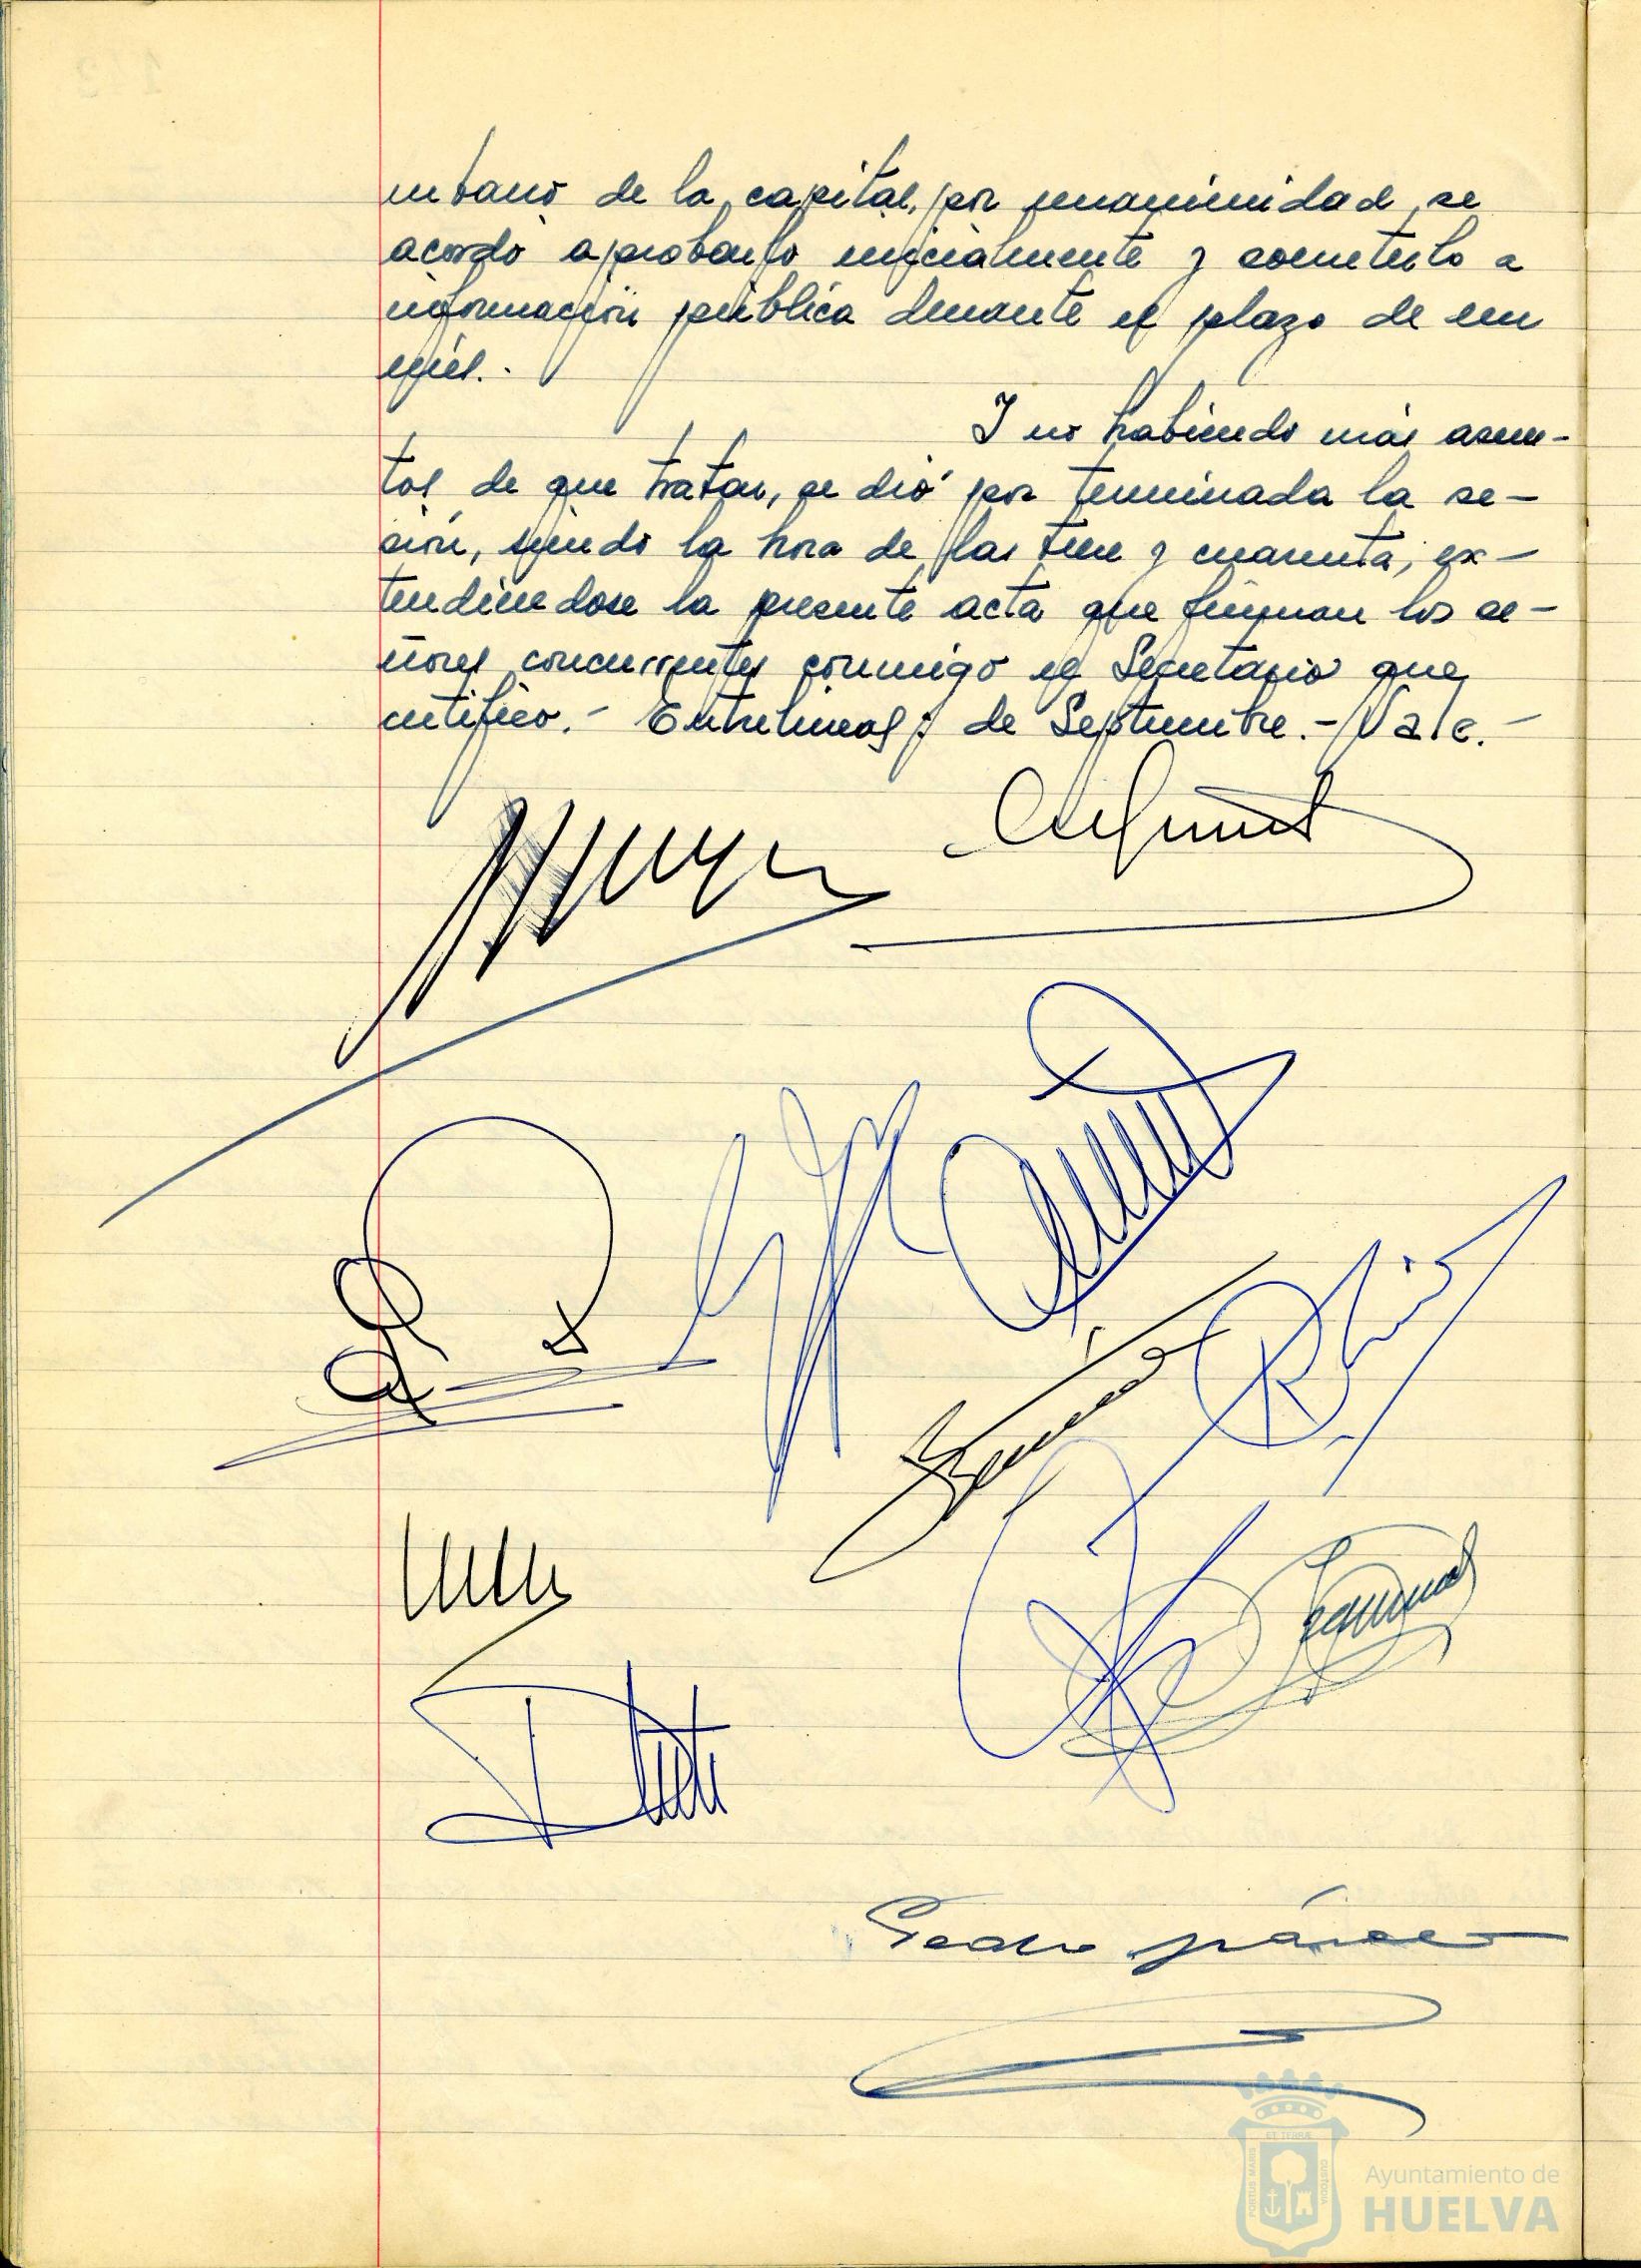 urbano de la capital, por unanimidad, se
acordó aprobarlo inicialmente y someterlo a
información pública durante el plazo de un
mes.-
Y no habiendo más asun-
tos de que tratar, se dió por terminada la se-
sión, siendo la hora de las trece y cuarenta, ex-
tendiéndose la presente acta que firman los se-
ñores concurrentes conmigo el Secretario que
certifico.- Entrelineas: de Septiembre.- Vale.-
Pedro
PORTUS MARIS ET TERRAE CUSTODIA
Ayuntamiento de
HUELVA